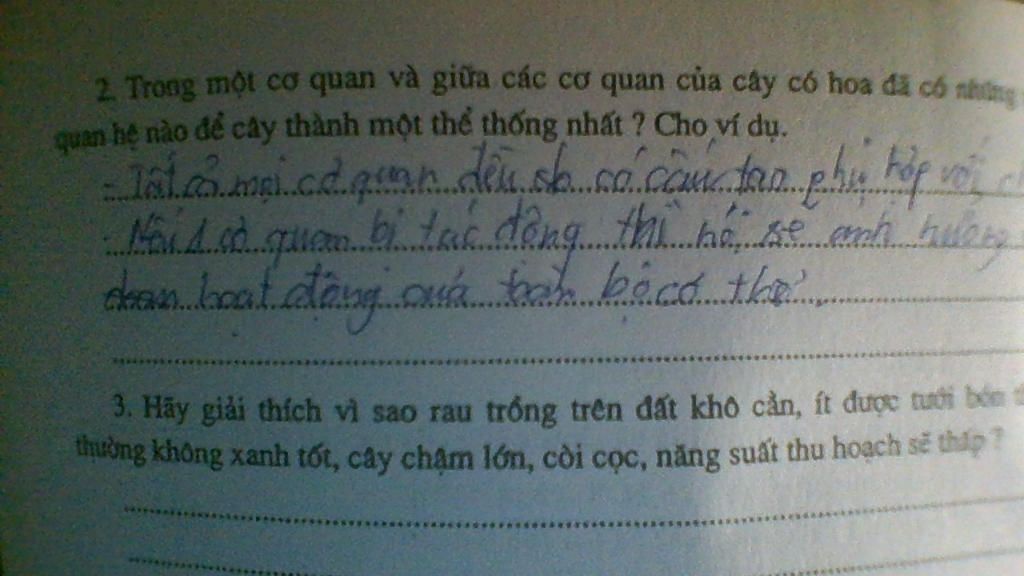 2. Trong một cơ quan và giữa các cơ quan của cây có hoa đã có những
quan hệ nào để cây thành một thể thống nhất ? Cho ví dụ.
- Tất cả mọi cơ quan đều có cấu tạo phù hợp với
- Nếu 1 cơ quan bị tác động thì nó sẽ ảnh hưởng
hoạt động bộ cơ thể.
3. Hãy giải thích vì sao rau trồng trên đất khô cằn, ít được tưới bón
thường không xanh tốt, cây chậm lớn, còi cọc, năng suất thu hoạch sẽ thấp ?